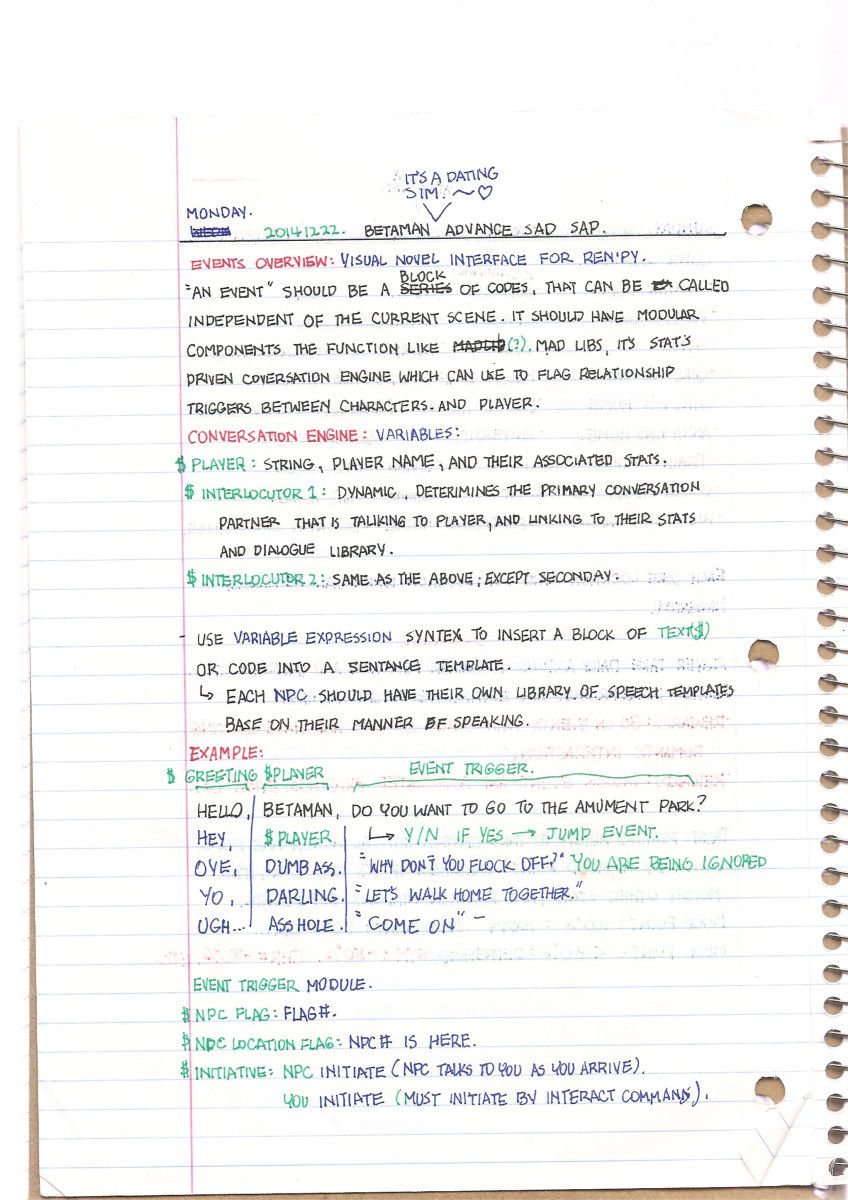 IT'S A DATING
SIM. ~♡
MONDAY.
20141222. BETAMAN ADVANCE SAD SAP.
EVENTS OVERVIEW: VISUAL NOVEL INTERFACE FOR REN'PY.
BLOCK
"AN EVENT" SHOULD BE A SERIES OF CODES, THAT CAN BE CALLED
INDEPENDENT OF THE CURRENT SCENE. IT SHOULD HAVE MODULAR
COMPONENTS THE FUNCTION LIKE MADLIB (?). MAD LIBS, IT'S STAT'S
DRIVEN COVERSATION ENGINE, WHICH CAN USE TO FLAG RELATIONSHIP
TRIGGERS BETWEEN CHARACTERS. AND PLAYER.
CONVERSATION ENGINE: VARIABLES:
$ PLAYER: STRING, PLAYER NAME, AND THEIR ASSOCIATED STATS.
$ INTERLOCUTOR 1: DYNAMIC, DETERIMINES THE PRIMARY CONVERSATION
PARTNER THAT IS TALIKING TO PLAYER, AND LINKING TO THEIR STATS
AND DIALOGUE LIBRARY.
$ INTERLOCUTOR 2: SAME AS THE ABOVE; EXCEPT SECONDAY.
- USE VARIABLE EXPRESSION SYNTEX TO INSERT A BLOCK OF TEXT($)
OR CODE INTO A SENTANCE TEMPLATE.
↳ EACH NPC SHOULD HAVE THEIR OWN LIBRARY OF SPEECH TEMPLATES
BASE ON THEIR MANNER OF SPEAKING.
EXAMPLE:
$ GREETING $PLAYER EVENT TRIGGER.
HELLO, BETAMAN, DO YOU WANT TO GO TO THE AMUMENT PARK?
HEY, $PLAYER ↳ Y/N IF YES → JUMP EVENT.
OYE, DUMBASS. "WHY DON'T YOU FLOCK OFF?" YOU ARE BEING IGNORED
YO, DARLING. "LET'S WALK HOME TOGETHER."
UGH... ASSHOLE. "COME ON" -
EVENT TRIGGER MODULE.
$ NPC FLAG: FLAG#.
$ NDC LOCATION FLAG: NPC# IS HERE.
$ INITIATIVE: NPC INITIATE (NPC TALKS TO YOU AS YOU ARRIVE).
YOU INITIATE (MUST INITIATE BY INTERACT COMMANDS).